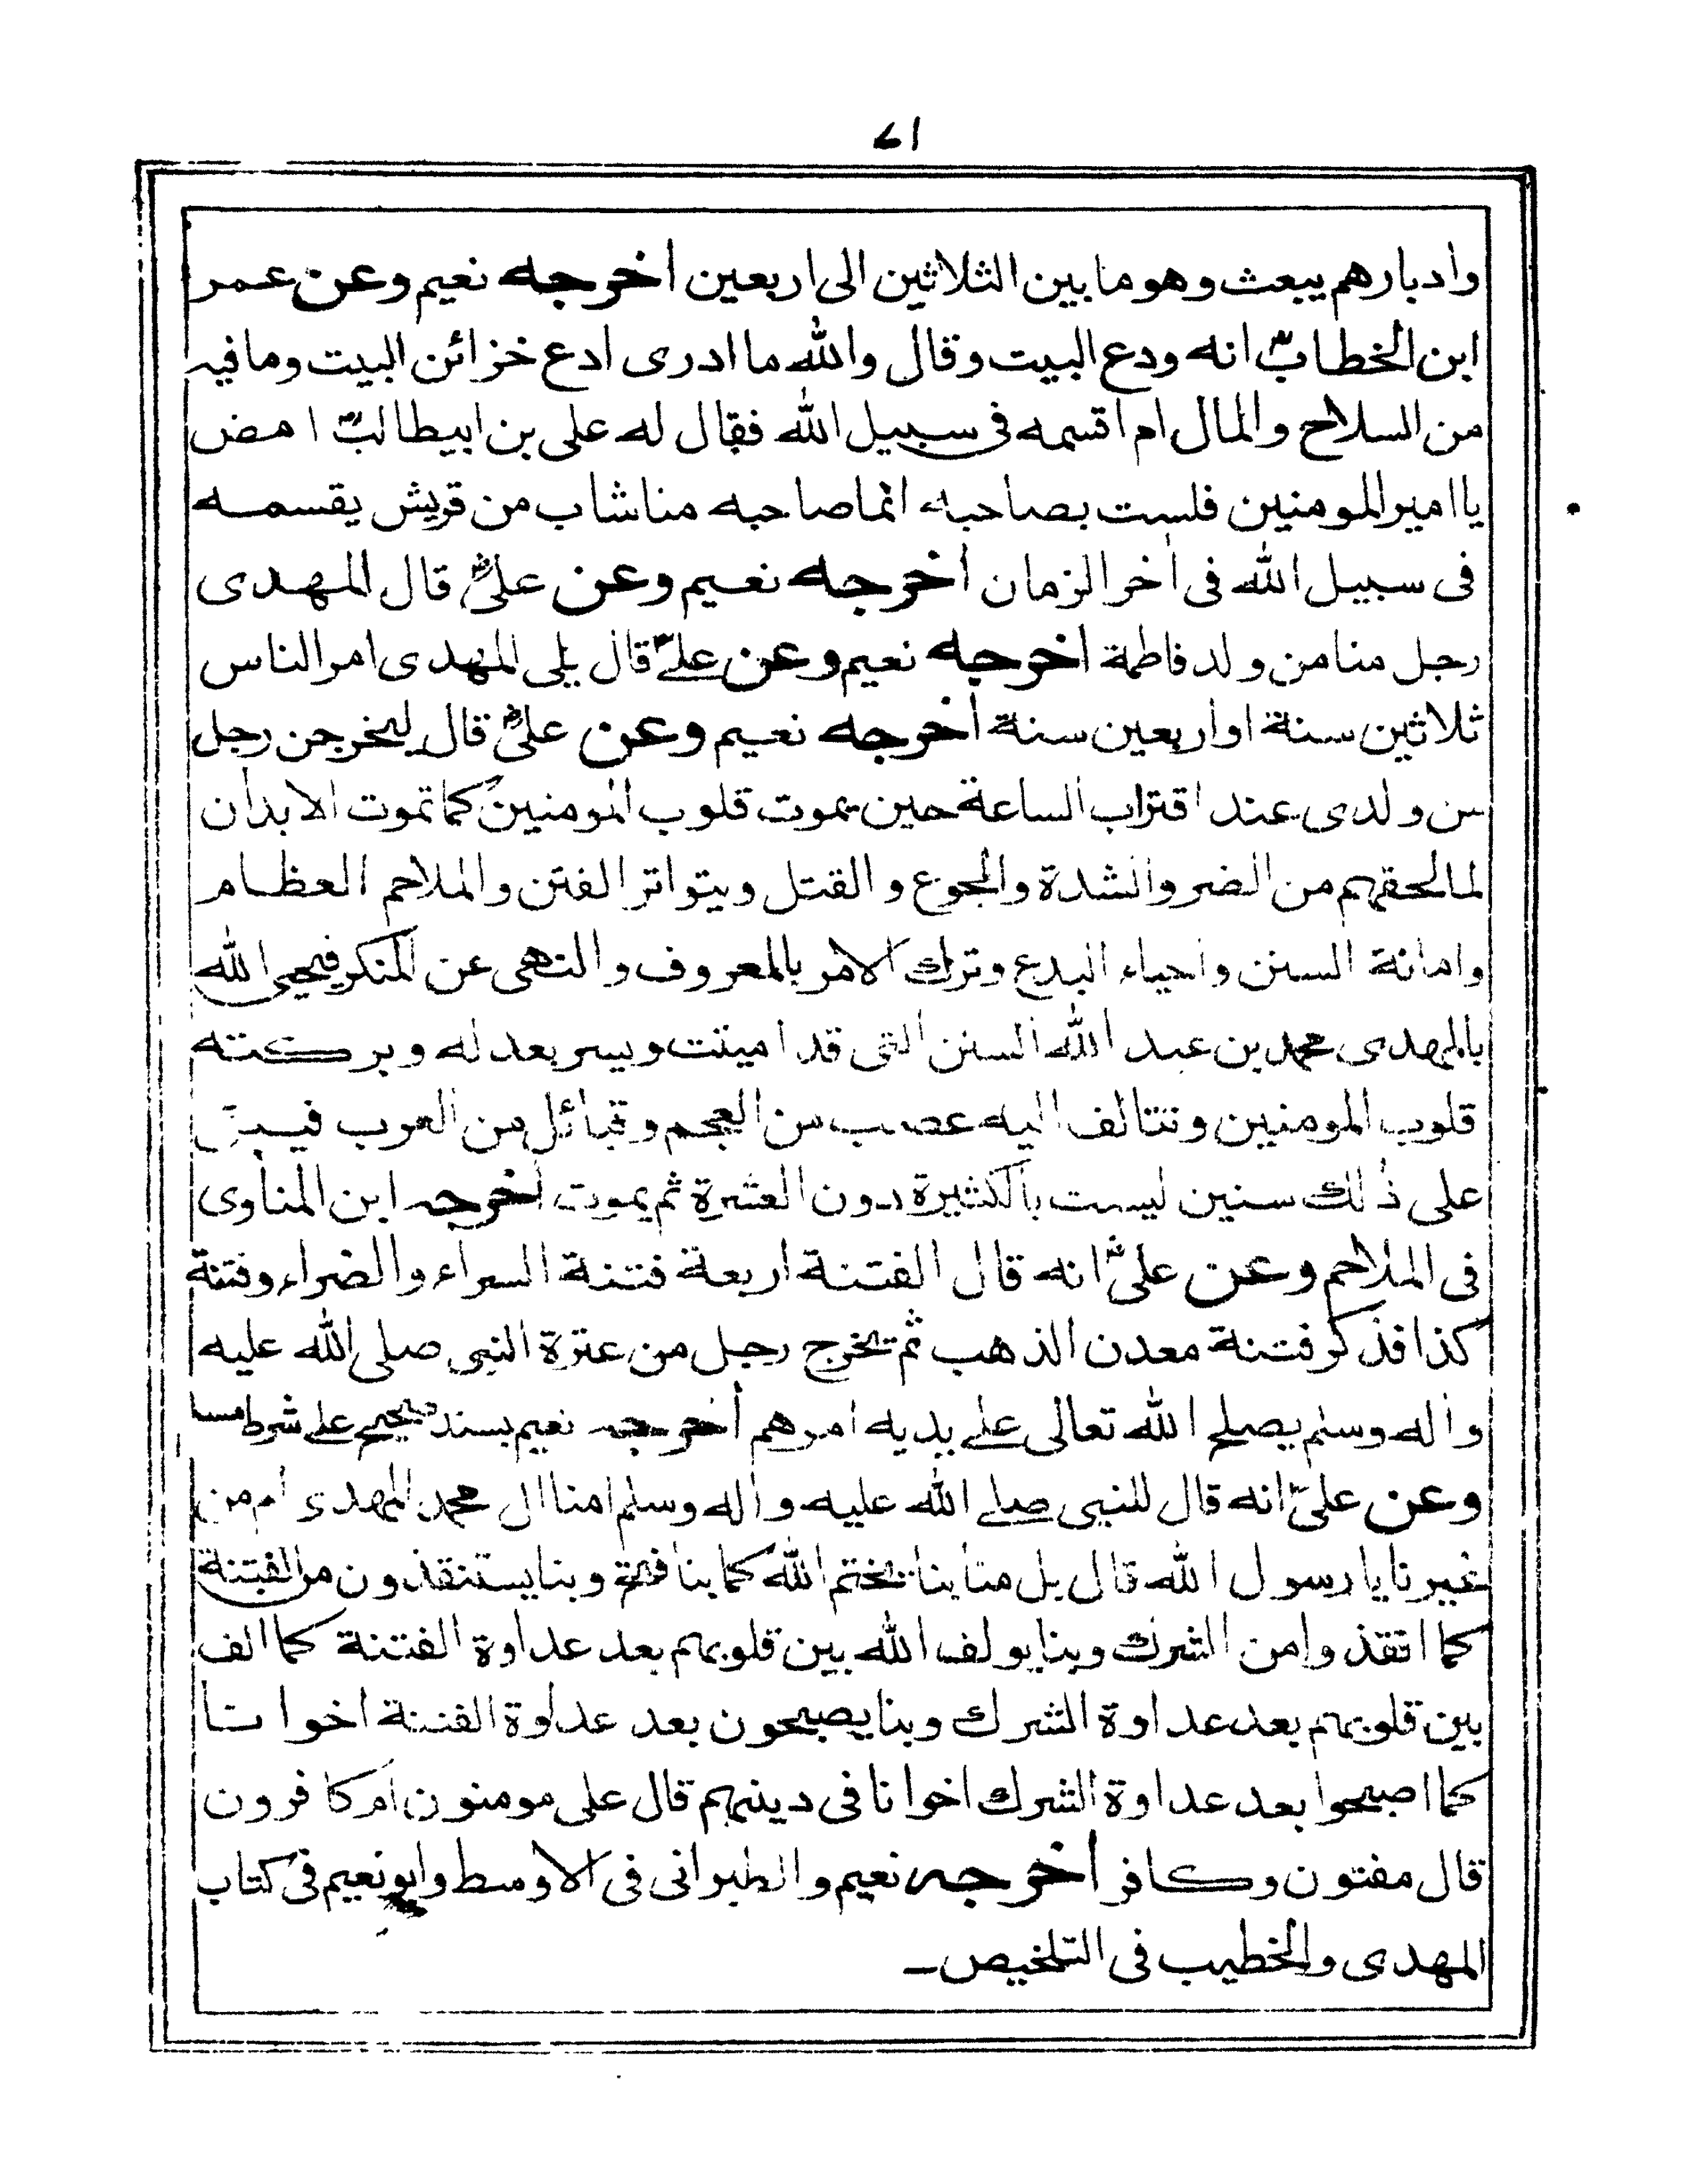 ٧١
وادبارهم يبعث وهو ما بين الثلاثين الى اربعين اخرجه نعيم وعن عمر
ابن الخطابؓ انه ودع البيت وقال والله ما ادرى ادع خزائن البيت وما فيه
من السلاح والمال ام اقسمه فى سبيل الله فقال له على بن ابيطالبؓ امض
يا امير المومنين فلست بصاحبه انما صاحبه منا شاب من قريش يقسمه
فى سبيل الله فى اخر الزمان اخرجه نعيم وعن علىؓ قال المهدى
رجل منا من ولد فاطمة اخرجه نعيم وعن علىؓ قال يلى المهدى امر الناس
ثلاثين سنة او اربعين سنة اخرجه نعيم وعن علىؓ قال ليخرجن رجل
من ولدى عند اقتراب الساعة حين يموت قلوب المومنين كما تموت الابدان
لما لحقهم من الضر والشدة والجوع والقتل ويتواتر الفتن والملاحم العظام
واماتة السنن واحياء البدع وترك الامر بالمعروف والنهى عن المنكر فيحيى الله
بالمهدى محمد بن عبد الله السنن التى قد اميتت ويسر بعدله وبركته
قلوب المومنين وتتالف اليه عصب من العجم وقبائل من العرب فيبقى
على ذلك سنين ليست بالكثيرة دون العشرة ثم يموت اخرجه ابن المناوى
فى الملاحم وعن علىؓ انه قال الفتنة اربعة فتنة السراء والضراء وفتنة
كذا فذكر فتنة معدن الذهب ثم تخرج رجل من عترة النبى صلى الله عليه
واله وسلم يصلح الله تعالى على يديه امرهم اخرجه نعيم بسند صحيح على شرط مسلم
وعن علىؓ انه قال للنبى صلى الله عليه واله وسلم امنا ال محمد المهدى ام من
غيرنا يا رسول الله قال بل منا بنا يختم الله كما بنا فتح وبنا يستنقذون من الفتنة
كما انقذوا من الشرك وبنا يولف الله بين قلوبهم بعد عداوة الفتنة كما الف
بين قلوبهم بعد عداوة الشرك وبنا يصبحون بعد عداوة الفتنة اخوانا
كما اصبحوا بعد عداوة الشرك اخوانا فى دينهم قال على مومنون ام كافرون
قال مفتون وكافر اخرجه نعيم والطبرانى فى الاوسط وابو نعيم فى كتاب
المهدى والخطيب فى التلخيص ــ